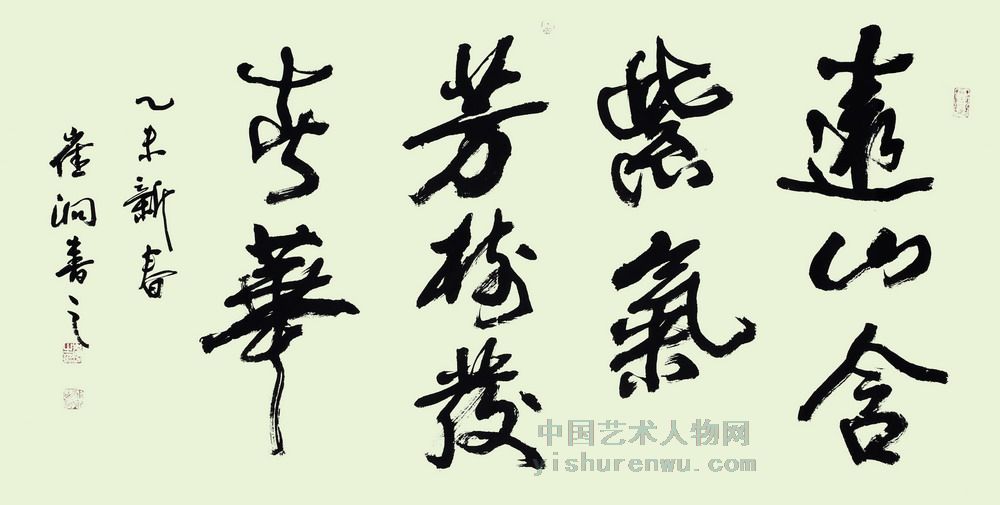 遠山含
紫氣
芳樹發
春華
乙未新春
崔洞書之
中国艺术人物网
yishurenwu.com